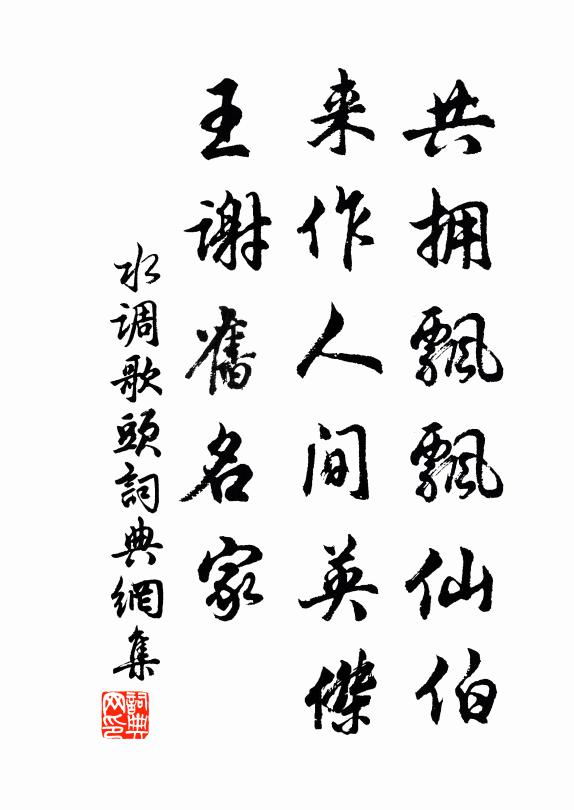 共拥飘飘仙伯
来作人间英傑
王谢舊名家
水调歌頭詞典網集
詞典网印